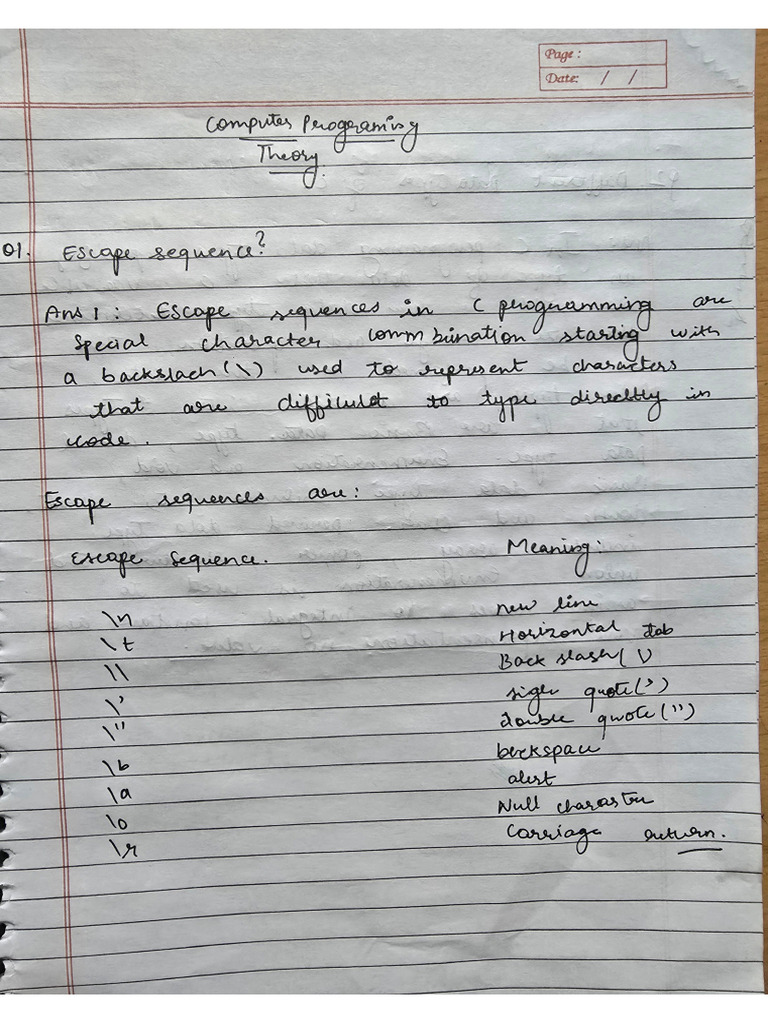 Page:
Date: / /
Computer Programing
Theory.
01. Escape sequence?
Ans 1 : Escape sequences in C programming are
special character commbination starting with
a backslach (\) used to represent characters
that are difficult to type directly in
code.
Escape sequences are:
escape sequence. Meaning:
\n new line
\t Horizontal tab
\\ Back slash( \)
\' sigle quote(')
\" double quote('')
\b backspace
\a alert
\o Null character
\r Carriage return.